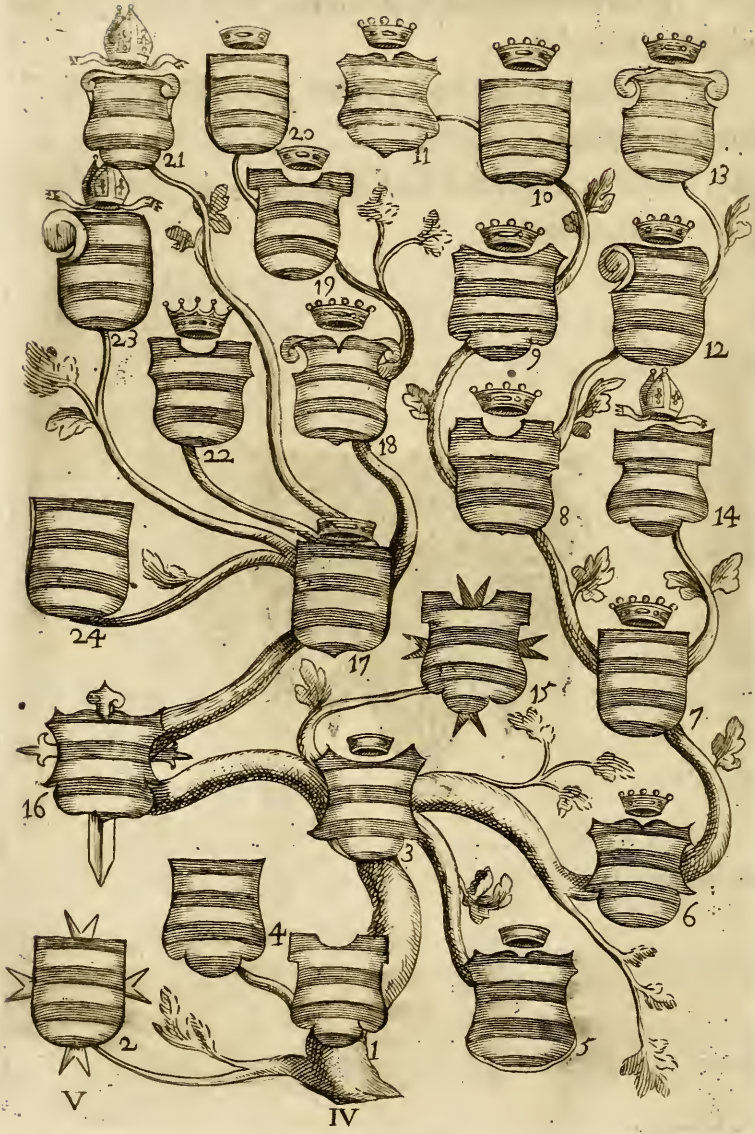 20
21
11
10
13
19
23
9
12
22
18
8
14
24
17
15
7
16
3
6
4
2
1
5
V
IV